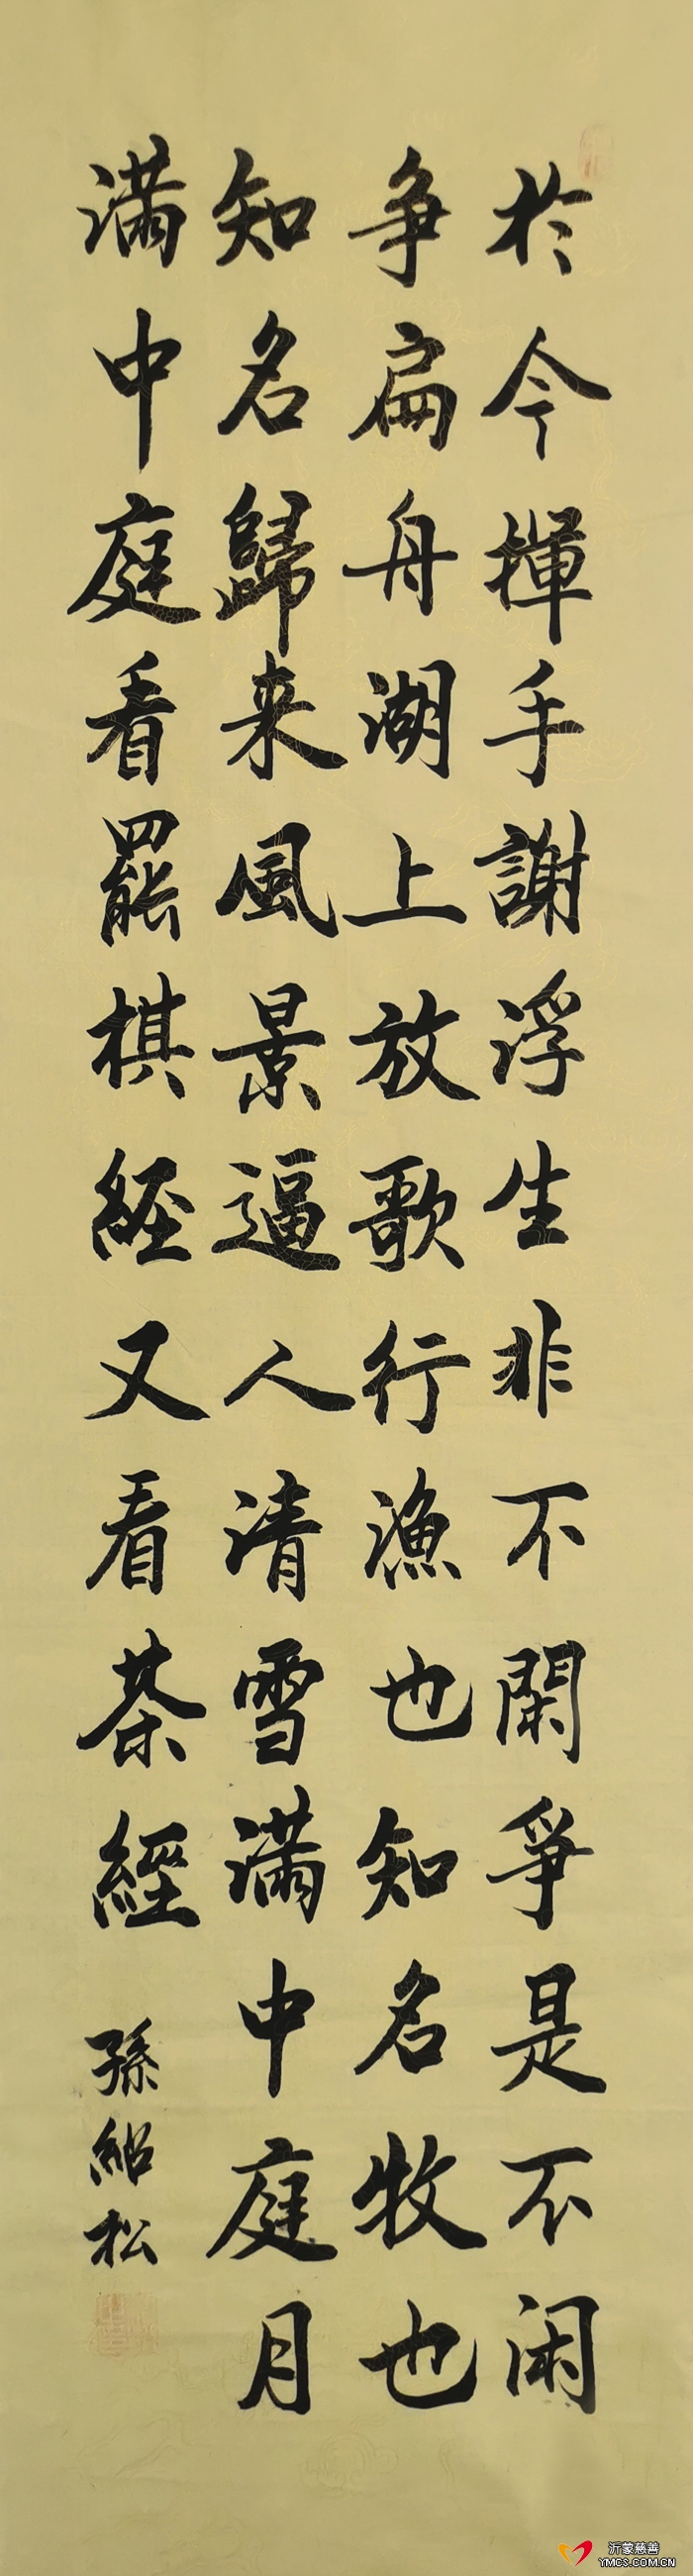 於今揮手謝浮生非不閑爭是不闲
争扁舟湖上放歌行漁也知名牧也
知名歸来風景逼人清雪满中庭月
满中庭看罷棋經又看茶經
孫紹松
沂蒙慈善
YMCS.COM.CN